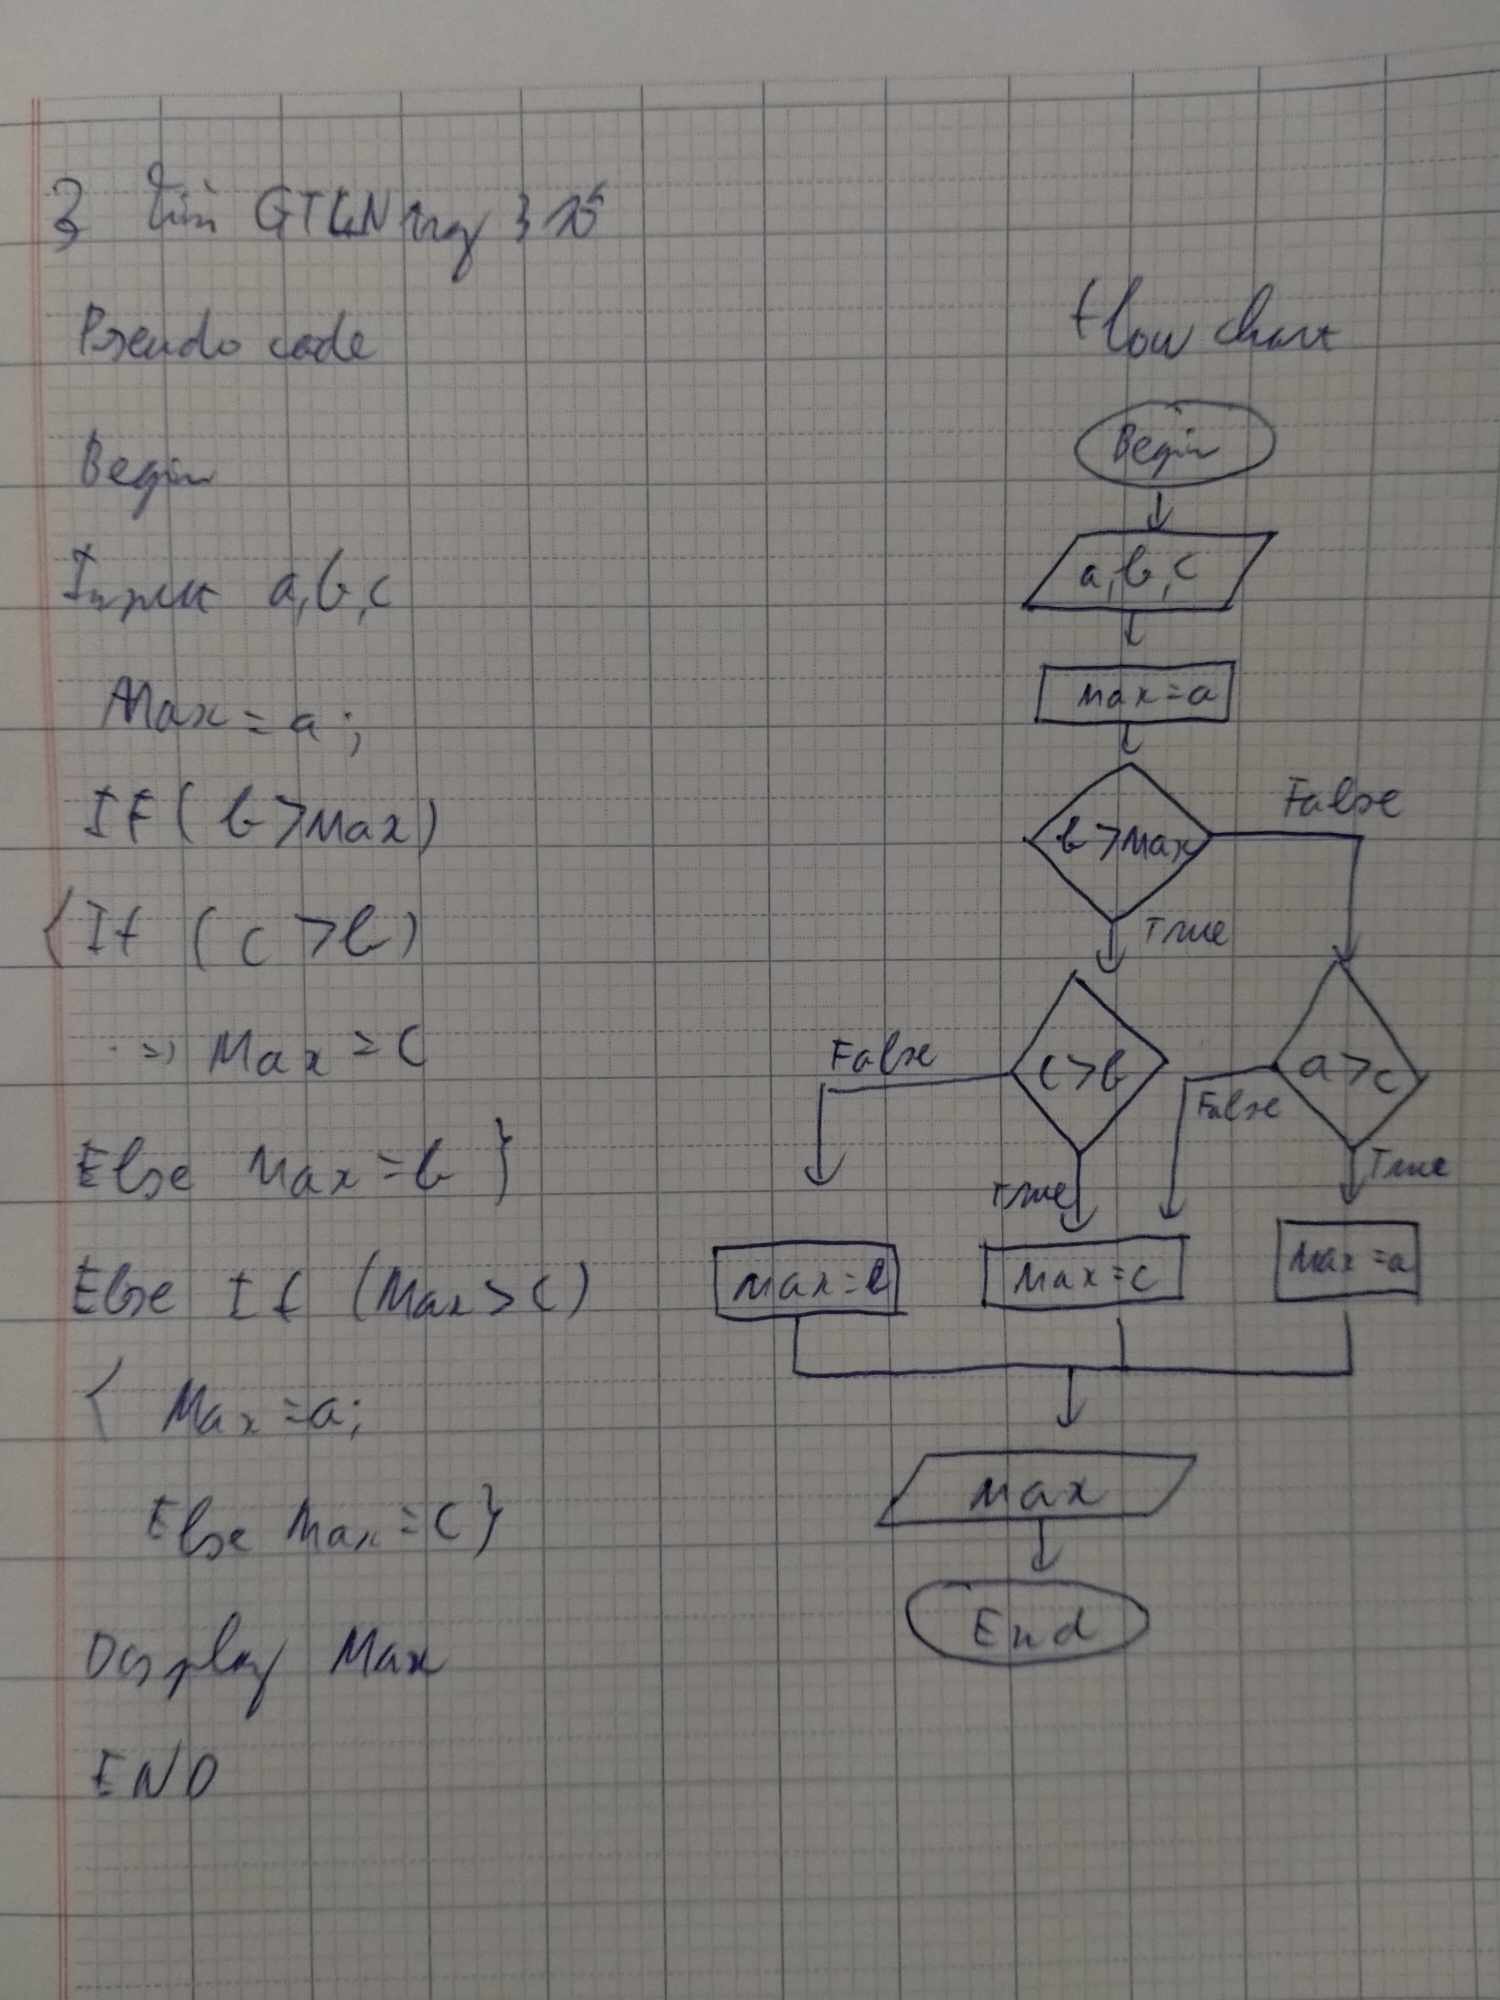 3 Tìm GTLN trg 3 số
Pseudo code
Begin
Input a,b,c
Max = a;
If ( b > Max)
{ If ( c > b)
=> Max = c
Else Max = b }
Else If (Max > c)
{ Max = a;
Else Max = c }
Display Max
END
flow chart
Begin
a, b, c
Max = a
b > Max
False
True
False
c > b
a > c
False
True
True
Max = b
Max = c
Max = a
Max
End